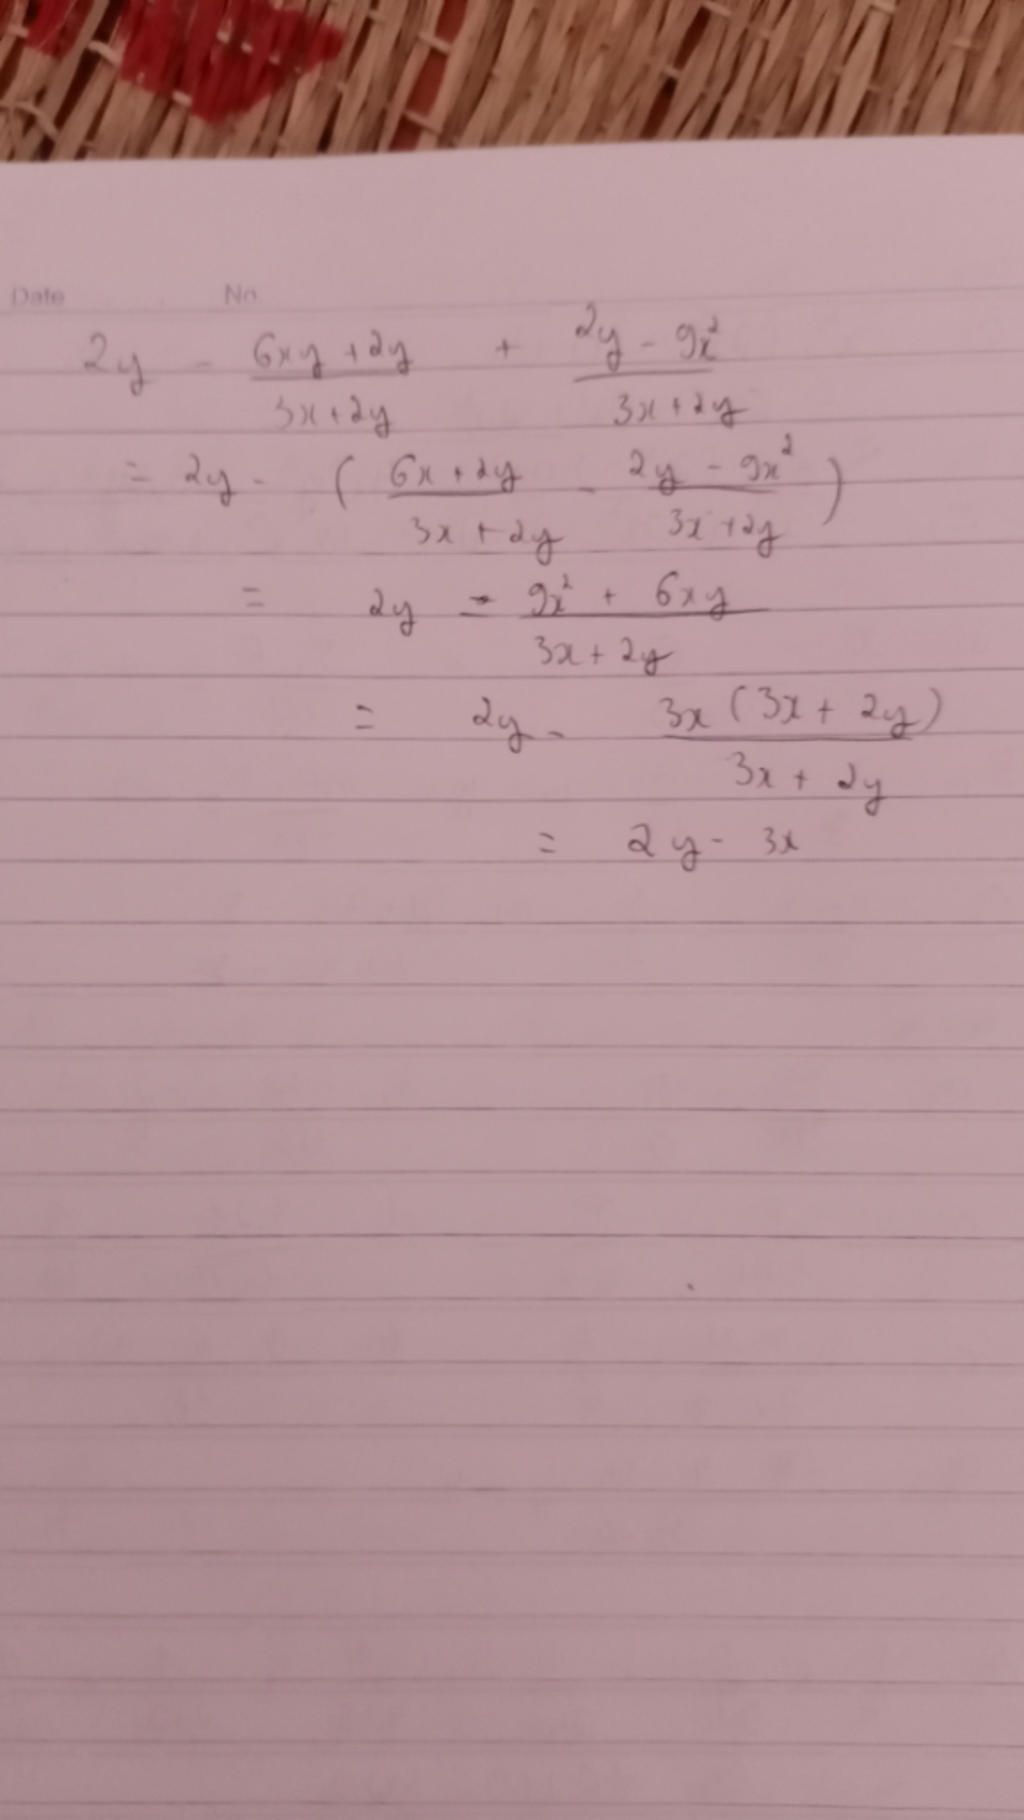 Date No.
2y - (6xy + 2y)/(3x + 2y) + (2y - 9x²)/(3x + 2y)
= 2y - ( (6x + 2y)/(3x + 2y) - (2y - 9x²)/(3x + 2y) )
= 2y - (9x² + 6xy)/(3x + 2y)
= 2y - 3x(3x + 2y)/(3x + 2y)
= 2y - 3x